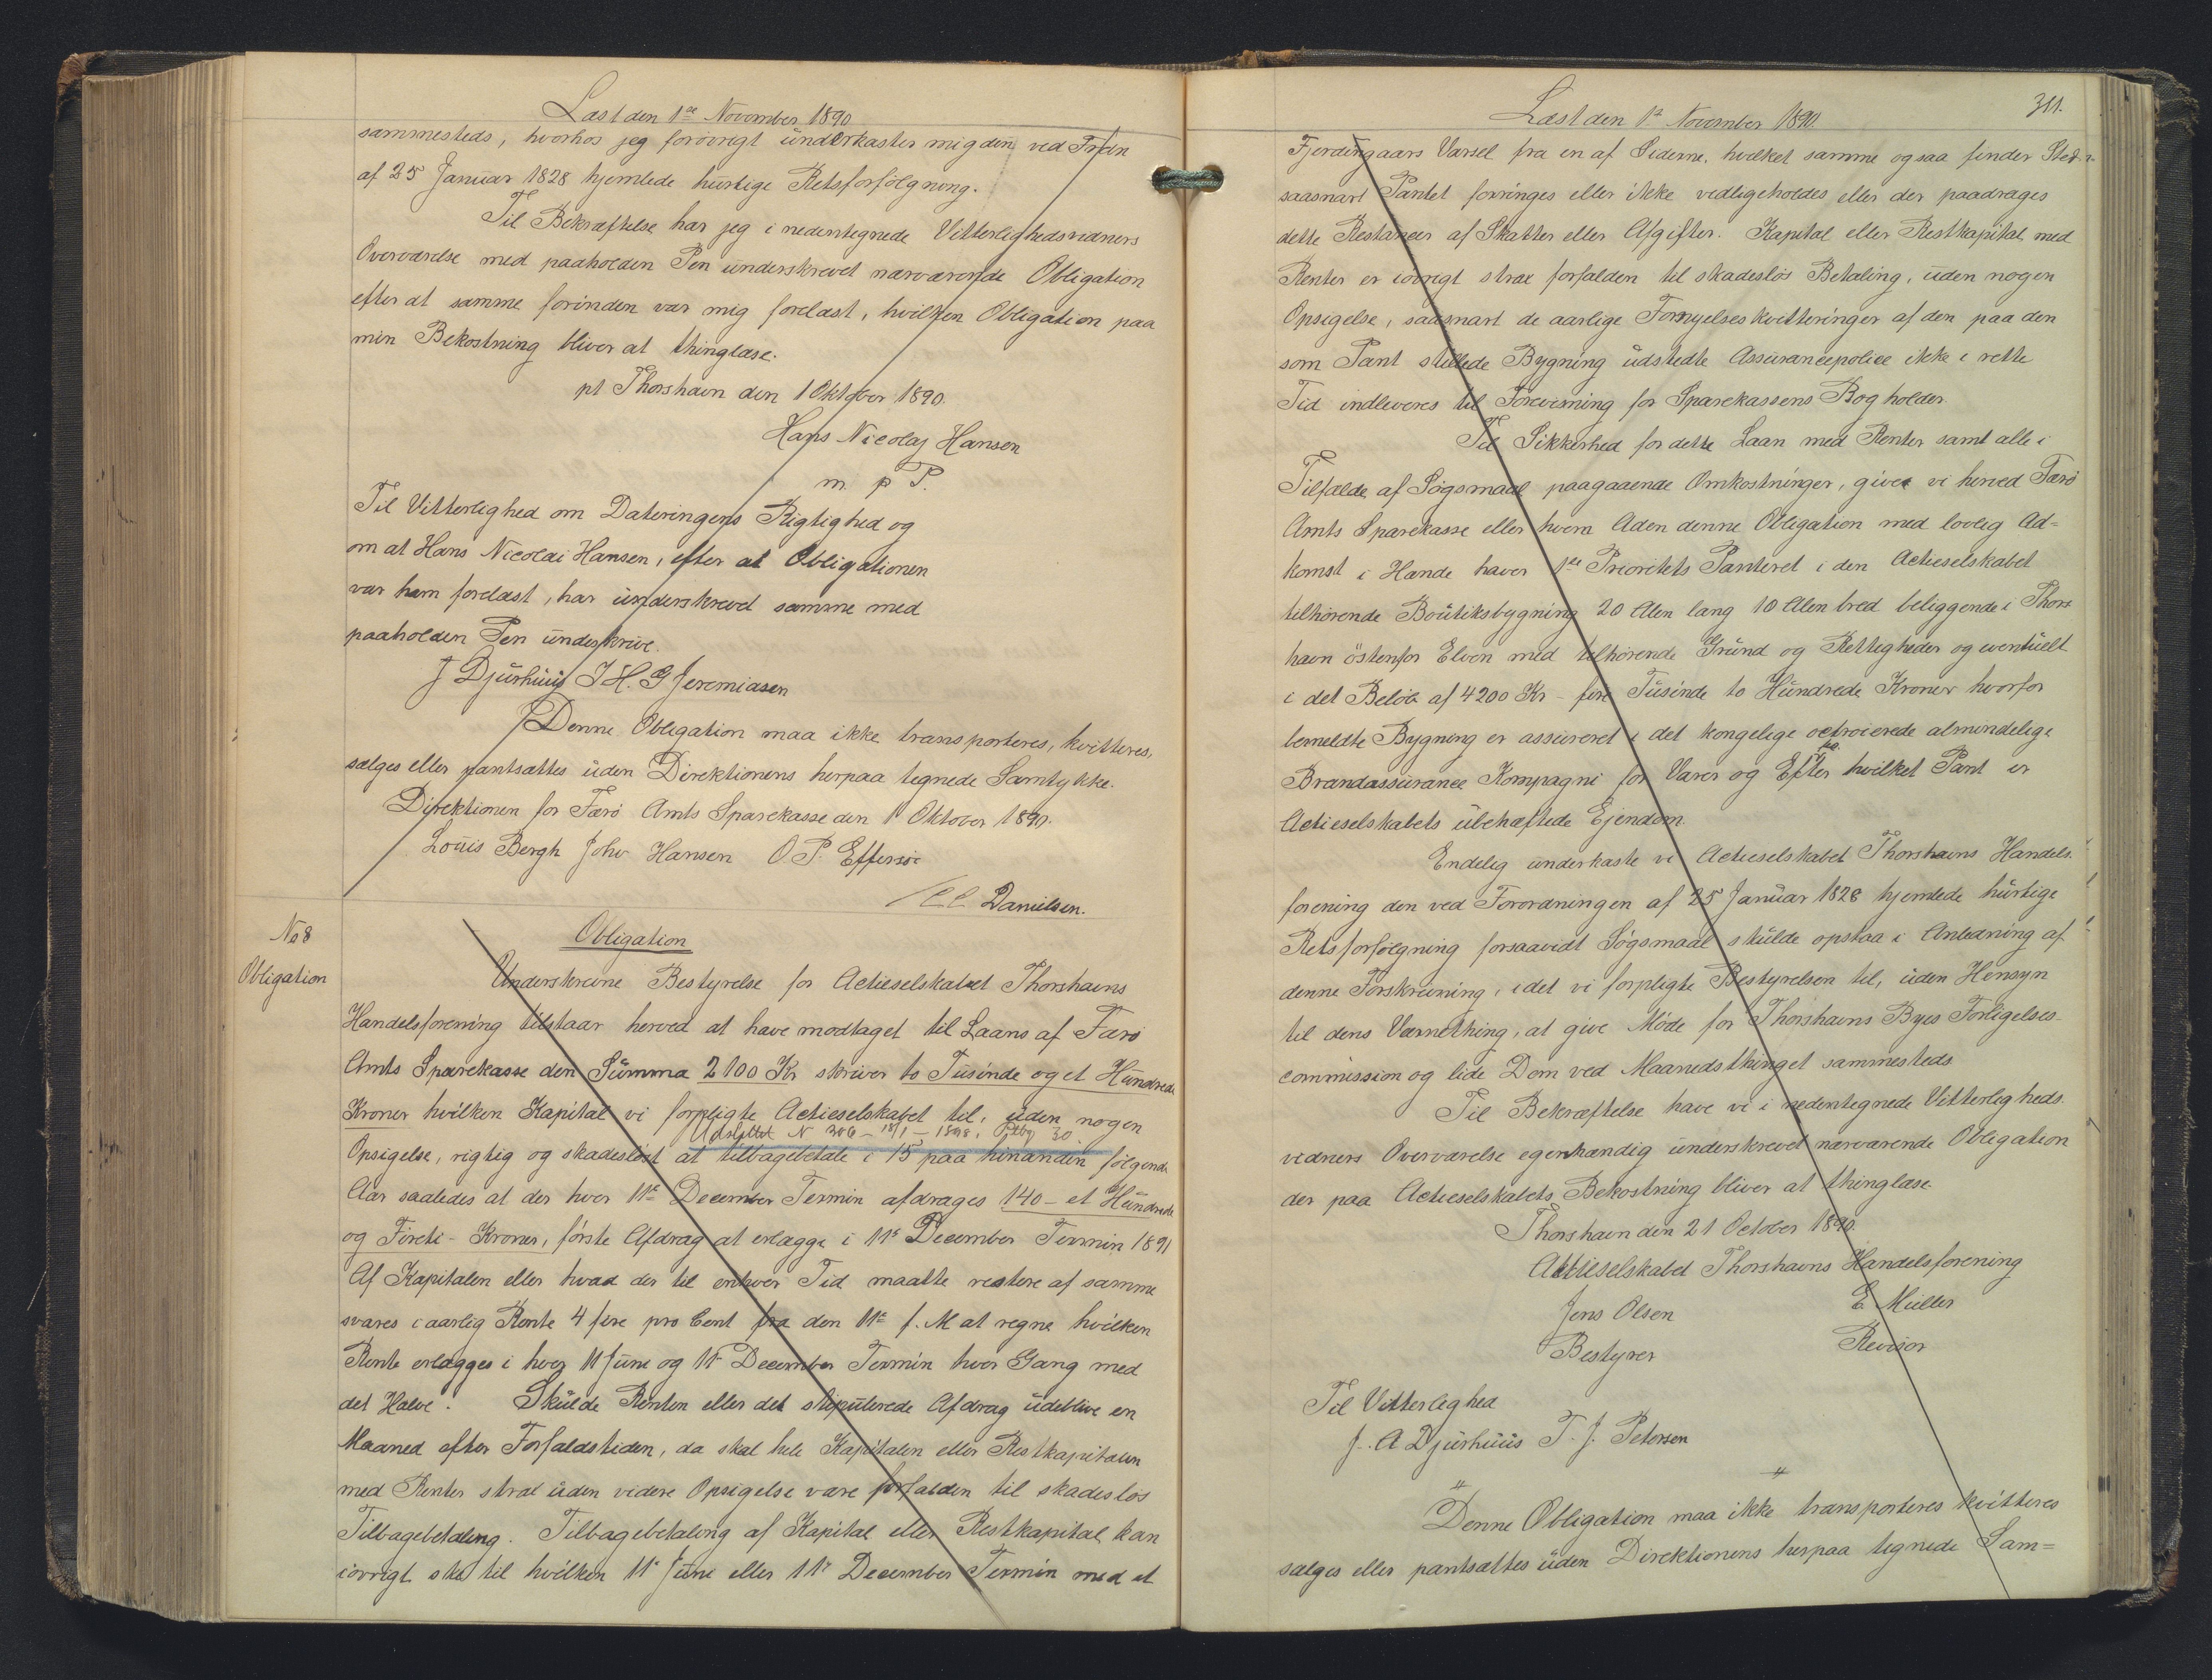 Læst den 1ste November 1890
sammesteds, hvorhos jeg forövrigt underkaster mig den ved Frdn
af 25 Januar 1828 hjemlede hurtige Retsforfölgning.
Til Bekræftelse har jeg i nedentegnede Vitterlighedsvidners
Overværelse med paaholden Pen underskrevet nærværende Obligation
efter at samme forinden var mig forelæst, hvilken Obligation paa
min Bekostning bliver at thinglæse.
pt Thorshavn den 1 Oktober 1890.
Hans Nicolaj Hansen
m p P.
Til Vitterlighed om Dateringens Rigtighed og
om at Hans Nicolai Hansen, efter at Obligationen
var ham forelæst, har underskrevet samme med
paaholden Pen underskrive.
J Djurhuus J H. G Jeremiasen
Denne Obligation maa ikke transporteres, kvitteres,
sælges eller pantsættes uden Direktionens herpaa tegnede Samtykke.
Direktionen for Færö Amts Sparekasse den 1 Oktober 1890.
Louis Bergh Johs Hansen O. P. Effersöe
Danielsen.
No 8
Obligation
Obligation
Underskrevne Bestyrelse for Actieselskabet Thorshavns
Handelsforening tilstaar herved at have modtaget til Laans af Færö
Amts Sparekasse den Summa 2100 Kr skriver to Tusinde og et Hundrede
Kroner hvilken Kapital vi forpligte Actieselskabet til, uden nogen
Udslettet N 306 – 18/1 – 1898. Ptbg 30.
Opsigelse, rigtig og skadeslöst at tilbagebetale i 15 paa hinanden fölgende
Aar saaledes at der hver 11te December Termin afdrages 140 – et Hundrede
og Fireti – Kroner, förste Afdrag at erlægge i 11te December Termin 1891
Af Kapitalen eller hvad der til enhver Tid maatte restere af samme
svares i aarlig Rente 4 fire pro Cent fra den 11te f. M at regne hvilken
Rente erlægges i hver 11 Juni og 11te December Termin hver Gang med
det Halve. Skulde Renten eller det stipulerede Afdrag udeblive en
Maaned efter Forfaldstiden, da skal hele Kapitalen eller Restkapitalen
med Renter strax uden videre Opsigelse være forfalden til skadeslös
Tilbagebetaling. Tilbagebetaling af Kapital eller Restkapital kan
iövrigt ske til hvilken 11te Juni eller 11te December Termin med et
Læst den 1ste November 1890.
311.
Fjerdingaars Varsel fra en af Siderne, hvilket samme ogsaa finder Sted
saasnart Pantet forringes eller ikke vedligeholdes eller der paadrages
dette Restancer af Skatter eller Afgifter. Kapital eller Restkapital med
Renter er iövrigt strax forfalden til skadeslös Betaling, uden nogen
Opsigelse, saasnart de aarlige Fornyelseskvitteringer af den paa den
som Pant stillede Bygning udstedte Assurancepolice ikke i rette
Tid indleveres til Forevisning for Sparekassens Bogholder
Til Sikkerhed for dette Laan med Renter samt alle i
Tilfælde af Sögsmaal paagaaende Omkostninger, give vi herved Færö
Amts Sparekasse eller hvem Aden denne Obligation med lovlig Ad=
komst i Hænde haver 1ste Prioritets Panteret i den Actieselskabet
tilhörende Boutiksbygning 20 Alen lang 10 Alen bred beliggende i Thors
havn östenfor Elven med tilhörende Grund og Rettigheder og eventuelt
i det Belöb af 4200 Kr – fire Tusinde to Hundrede Kroner hvorfor
bemeldte Bygning er assureret i det kongelige octroierede almindelige
Brandassurance Kompagni for Varer og Effter hvilket Pant er
Actieselskabets ubehæftede Ejendom.
Endelig underkaste vi Actieselskabet Thorshavns Handels.
forening den ved Forordningen af 25 Januar 1828 hjemlede hurtige
Retsforfölgning forsaavidt Sögsmaal skulde opstaa i Anledning af
denne Forskrivning, idet vi forpligte Bestyrelsen til, uden Hensyn
til dens Værnething, at give Möde for Thorshavns Byes Forligelses-
commission og lide Dom ved Maanedsthinget sammesteds
Til Bekræftelse have vi i nedentegnede Vitterligheds.
vidners Overværelse egenhændig underskrevet nærværende Obligation
der paa Actieselskabets Bekostning bliver at thinglæse.
Thorshavn den 21 October 1890.
Actieselskabet Thorshavns Handelsforening
Jens Olsen E. Müller
Bestyrer Revisor
Til Vitterlighed
J. A Djurhuus T. J. Petersen
Denne Obligation maa ikke transporteres kvitteres
sælges eller pantsættes uden Direktionens herpaa tegnede Sam=